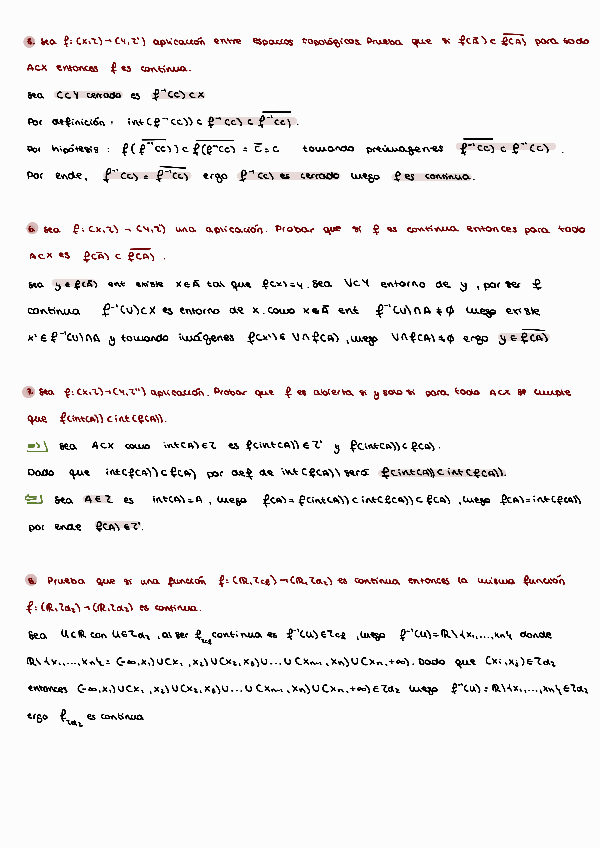 5. Sea f: (X,τ) → (Y,τ') aplicación entre espacios topológicos. Prueba que si f(Ā) ⊂ \overline{f(A)} para todo
A⊂X entonces f es continua.
Sea C⊂Y cerrado es f⁻¹(C)⊂X
Por definición: int(f⁻¹(C)) ⊂ f⁻¹(C) ⊂ \overline{f⁻¹(C)}.
Por hipótesis: f(\overline{f⁻¹(C)}) ⊂ \overline{f(f⁻¹(C))} = C̄ = C tomando preimágenes \overline{f⁻¹(C)} ⊂ f⁻¹(C).
Por ende, f⁻¹(C) = \overline{f⁻¹(C)} ergo f⁻¹(C) es cerrado luego f es continua.
6. Sea f: (X,τ) → (Y,τ') una aplicación. Probar que si f es continua entonces para todo
A⊂X es f(Ā) ⊂ \overline{f(A)}.
Sea y∈f(Ā) ent existe x∈Ā tal que f(x)=y. Sea V⊂Y entorno de y, por ser f
continua f⁻¹(V)⊂X es entorno de x. Como x∈Ā ent f⁻¹(V)∩A ≠ ∅ luego existe
x'∈f⁻¹(V)∩A y tomando imágenes f(x')∈V∩f(A), luego V∩f(A)≠∅ ergo y∈\overline{f(A)}
7. Sea f: (X,τ)→(Y,τ') aplicación. Probar que f es abierta si y solo si para todo A⊂X se cumple
que f(int(A))⊂int(f(A)).
⇒) Sea A⊂X como int(A)∈τ es f(int(A))∈τ' y f(int(A))⊂f(A).
Dado que int(f(A))⊂f(A) por def de int(f(A)) será f(int(A))⊂int(f(A)).
⇐) Sea A∈τ es int(A)=A, luego f(A)=f(int(A))⊂int(f(A))⊂f(A), luego f(A)=int(f(A))
por ende f(A)∈τ'.
8. Prueba que si una función f: (ℝ,τcf)→(ℝ,τd₂) es continua entonces la misma función
f: (ℝ,τd₂)→(ℝ,τd₂) es continua.
Sea U⊂ℝ con U∈τd₂, al ser f_{τcf} continua es f⁻¹(U)∈τcf, luego f⁻¹(U)=ℝ\{x₁,...,xn} donde
ℝ\{x₁,...,xn} = (-∞,x₁)∪(x₁,x₂)∪(x₂,x₃)∪...∪(xn-₁,xn)∪(xn,+∞). Dado que (xi,xj)∈τd₂
entonces (-∞,x₁)∪(x₁,x₂)∪(x₂,x₃)∪...∪(xn-₁,xn)∪(xn,+∞)∈τd₂ luego f⁻¹(U)=ℝ\{x₁,...,xn}∈τd₂
ergo f_{τd₂} es continua